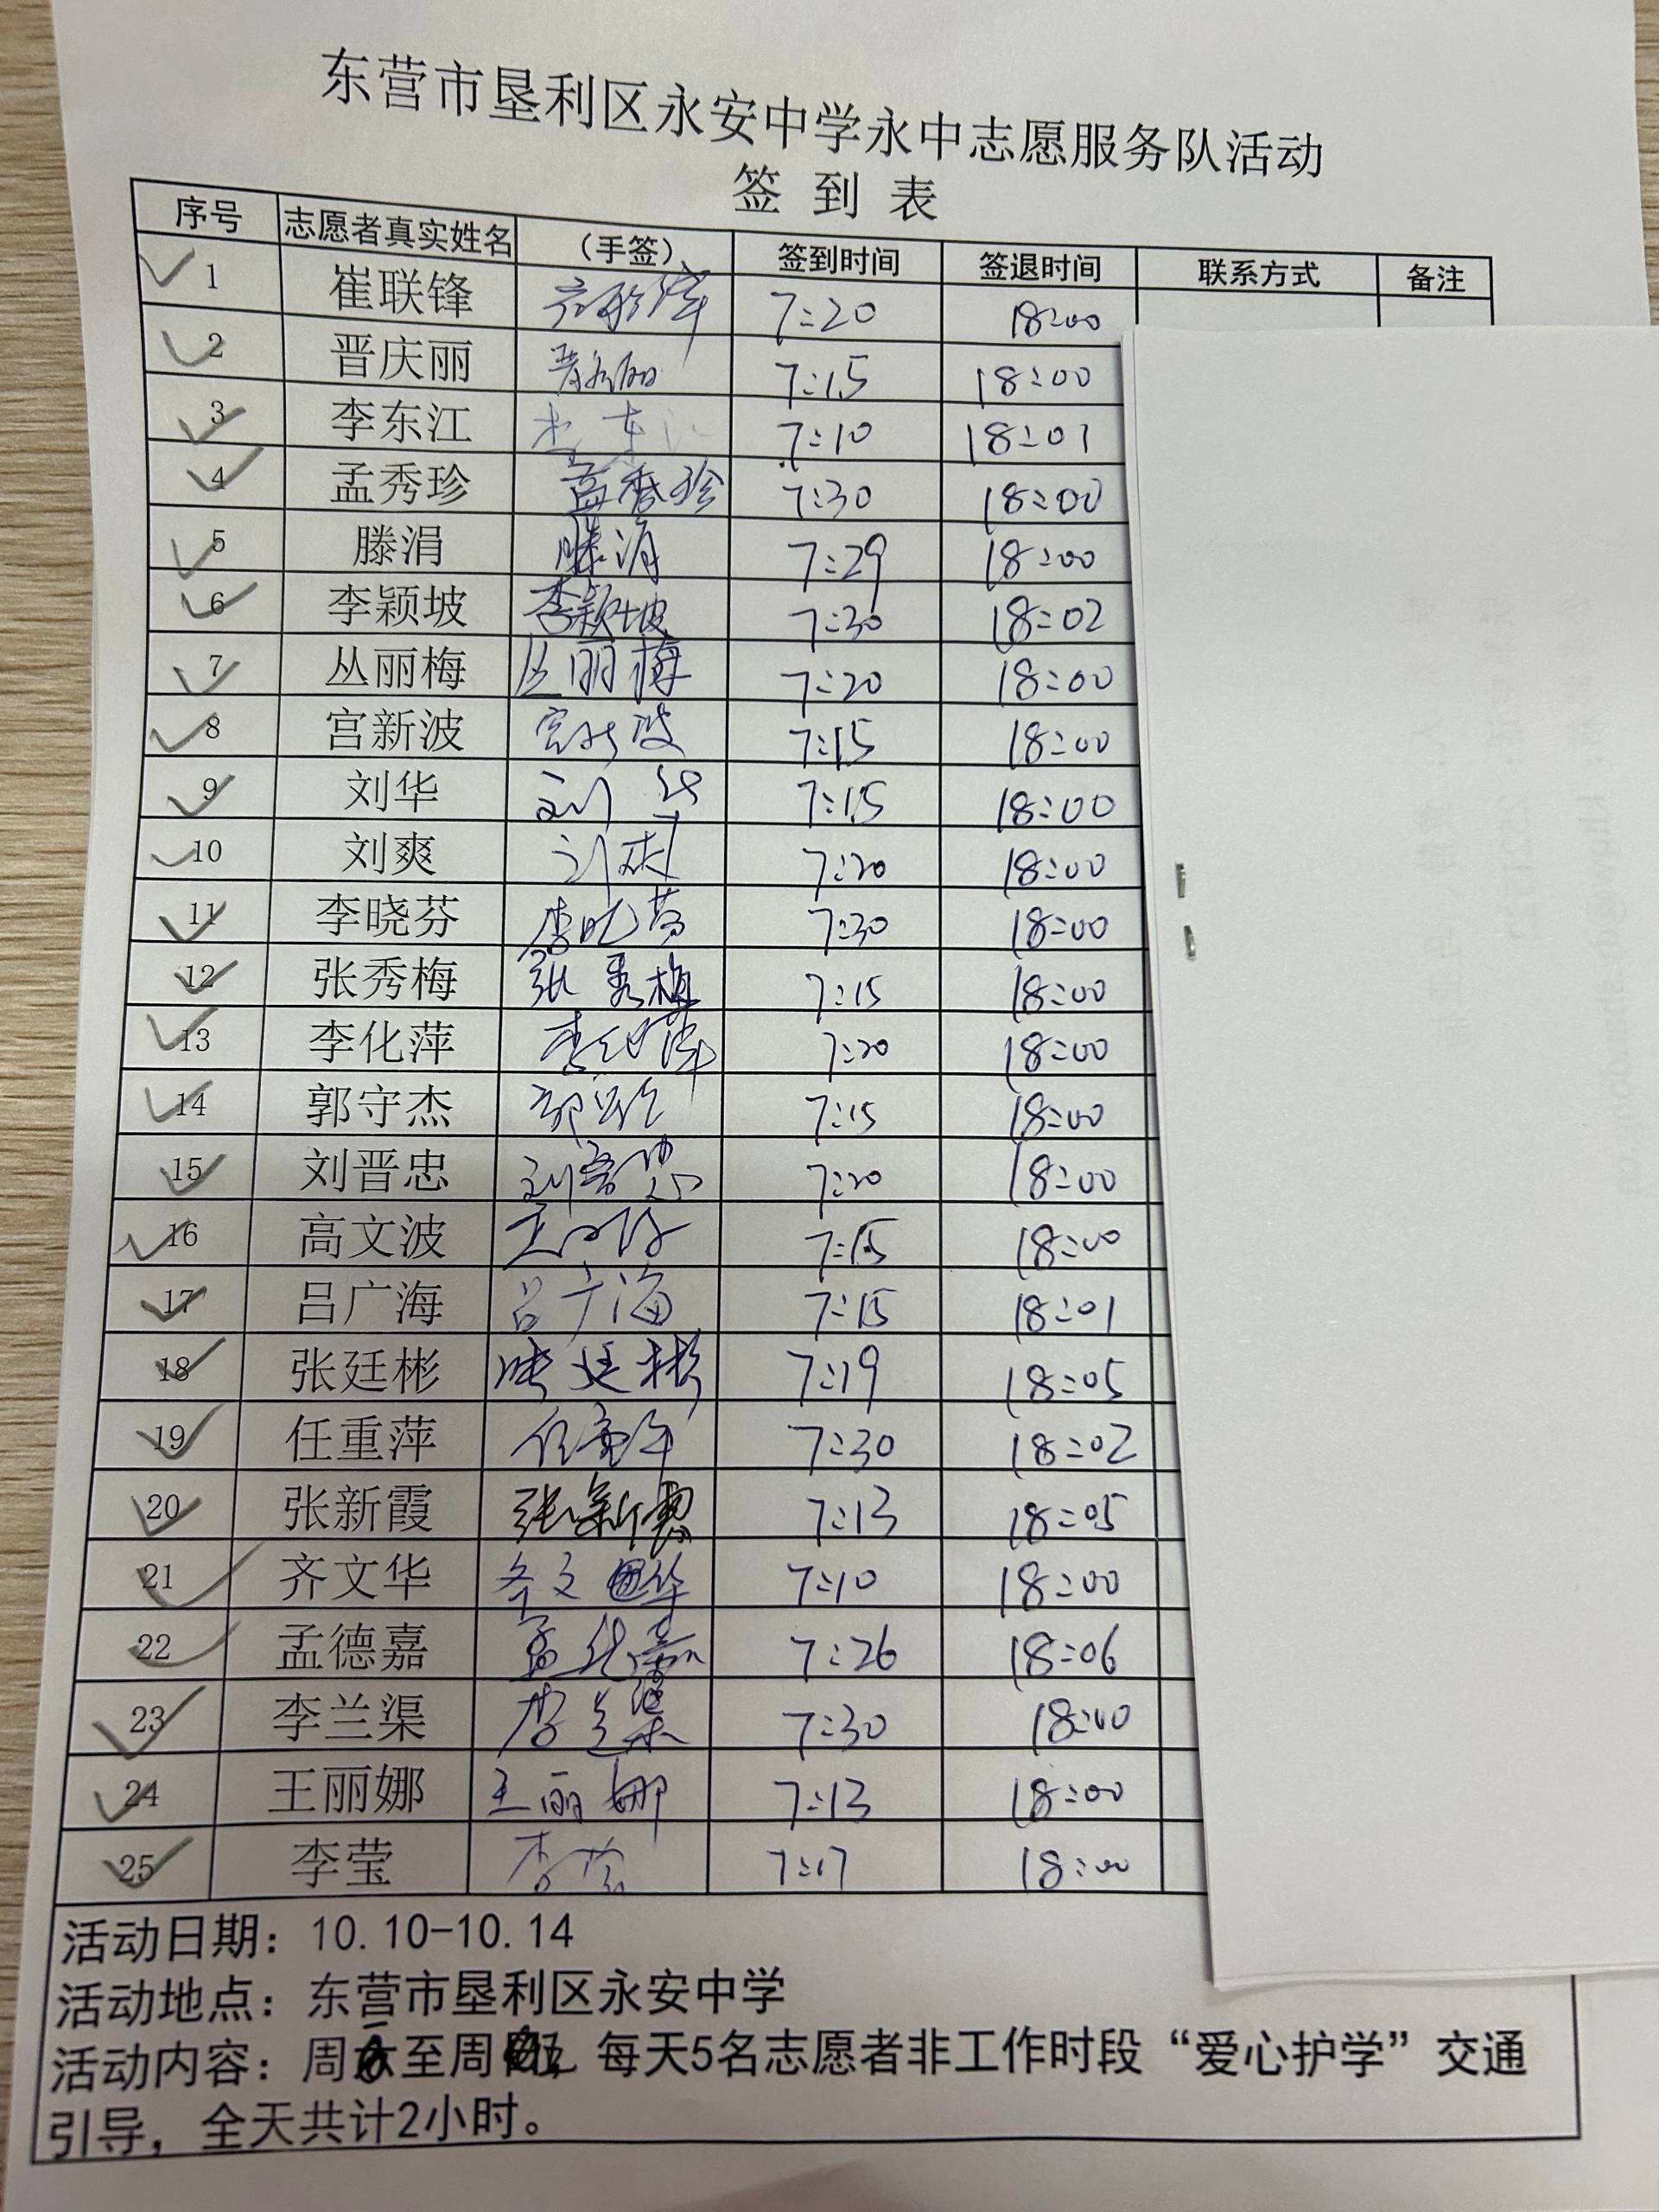 东营市垦利区永安中学永中志愿服务队活动
签 到 表
序号 志愿者真实姓名 （手签） 签到时间 签退时间 联系方式 备注
1 崔联锋 7:20 18:00
2 晋庆丽 晋庆丽 7:15 18:00
3 李东江 李东江 7:10 18:01
4 孟秀珍 孟秀珍 7:30 18:00
5 滕涓 滕涓 7:29 18:00
6 李颖坡 李颖坡 7:30 18:02
7 丛丽梅 丛丽梅 7:20 18:00
8 宫新波 宫新波 7:15 18:00
9 刘华 刘华 7:15 18:00
10 刘爽 刘爽 7:20 18:00
11 李晓芬 李晓芬 7:30 18:00
12 张秀梅 张秀梅 7:15 18:00
13 李化萍 李化萍 7:20 18:00
14 郭守杰 7:15 18:00
15 刘晋忠 刘晋忠 7:20 18:00
16 高文波 7:15 18:00
17 吕广海 吕广海 7:15 18:01
18 张廷彬 张廷彬 7:19 18:05
19 任重萍 任重萍 7:30 18:02
20 张新霞 张新霞 7:13 18:05
21 齐文华 齐文华 7:10 18:00
22 孟德嘉 孟德嘉 7:26 18:06
23 李兰渠 李兰渠 7:30 18:00
24 王丽娜 王丽娜 7:13 18:00
25 李莹 李莹 7:17 18:00
活动日期：10.10-10.14
活动地点：东营市垦利区永安中学
活动内容：周一至周五，每天5名志愿者非工作时段“爱心护学”交通
引导，全天共计2小时。